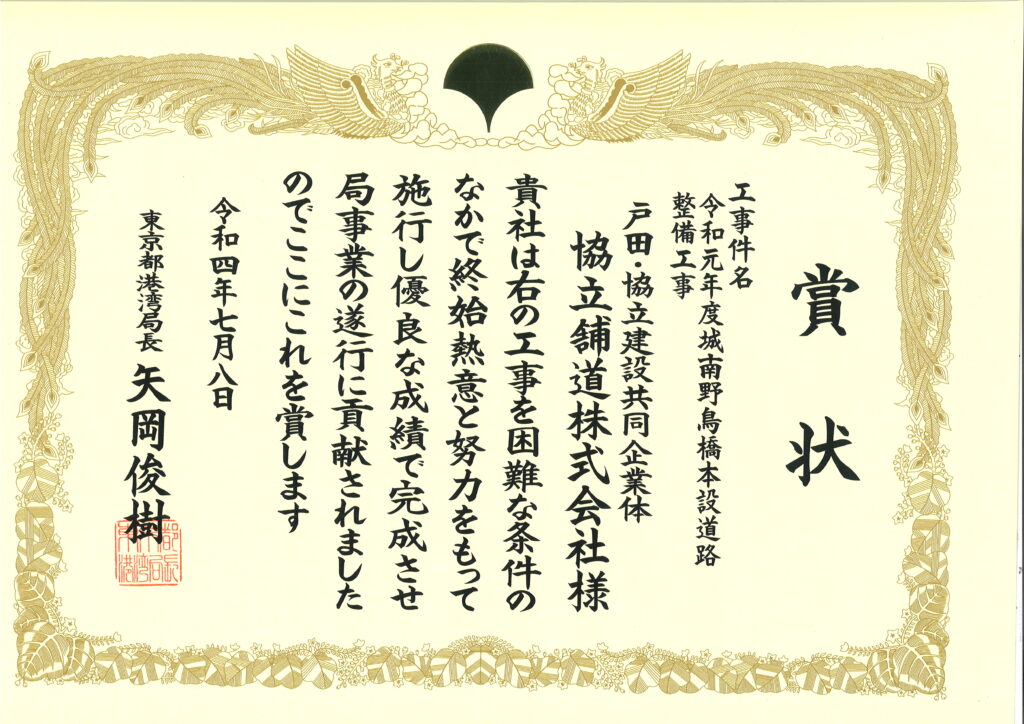 賞状
工事件名
令和元年度城南野鳥橋本設道路
整備工事
戸田・協立建設共同企業体
協立舗道株式会社様
貴社は右の工事を困難な条件の
なかで終始熱意と努力をもって
施行し優良な成績で完成させ
局事業の遂行に貢献されました
のでここにこれを賞します
令和四年七月八日
東京都港湾局長 矢岡俊樹